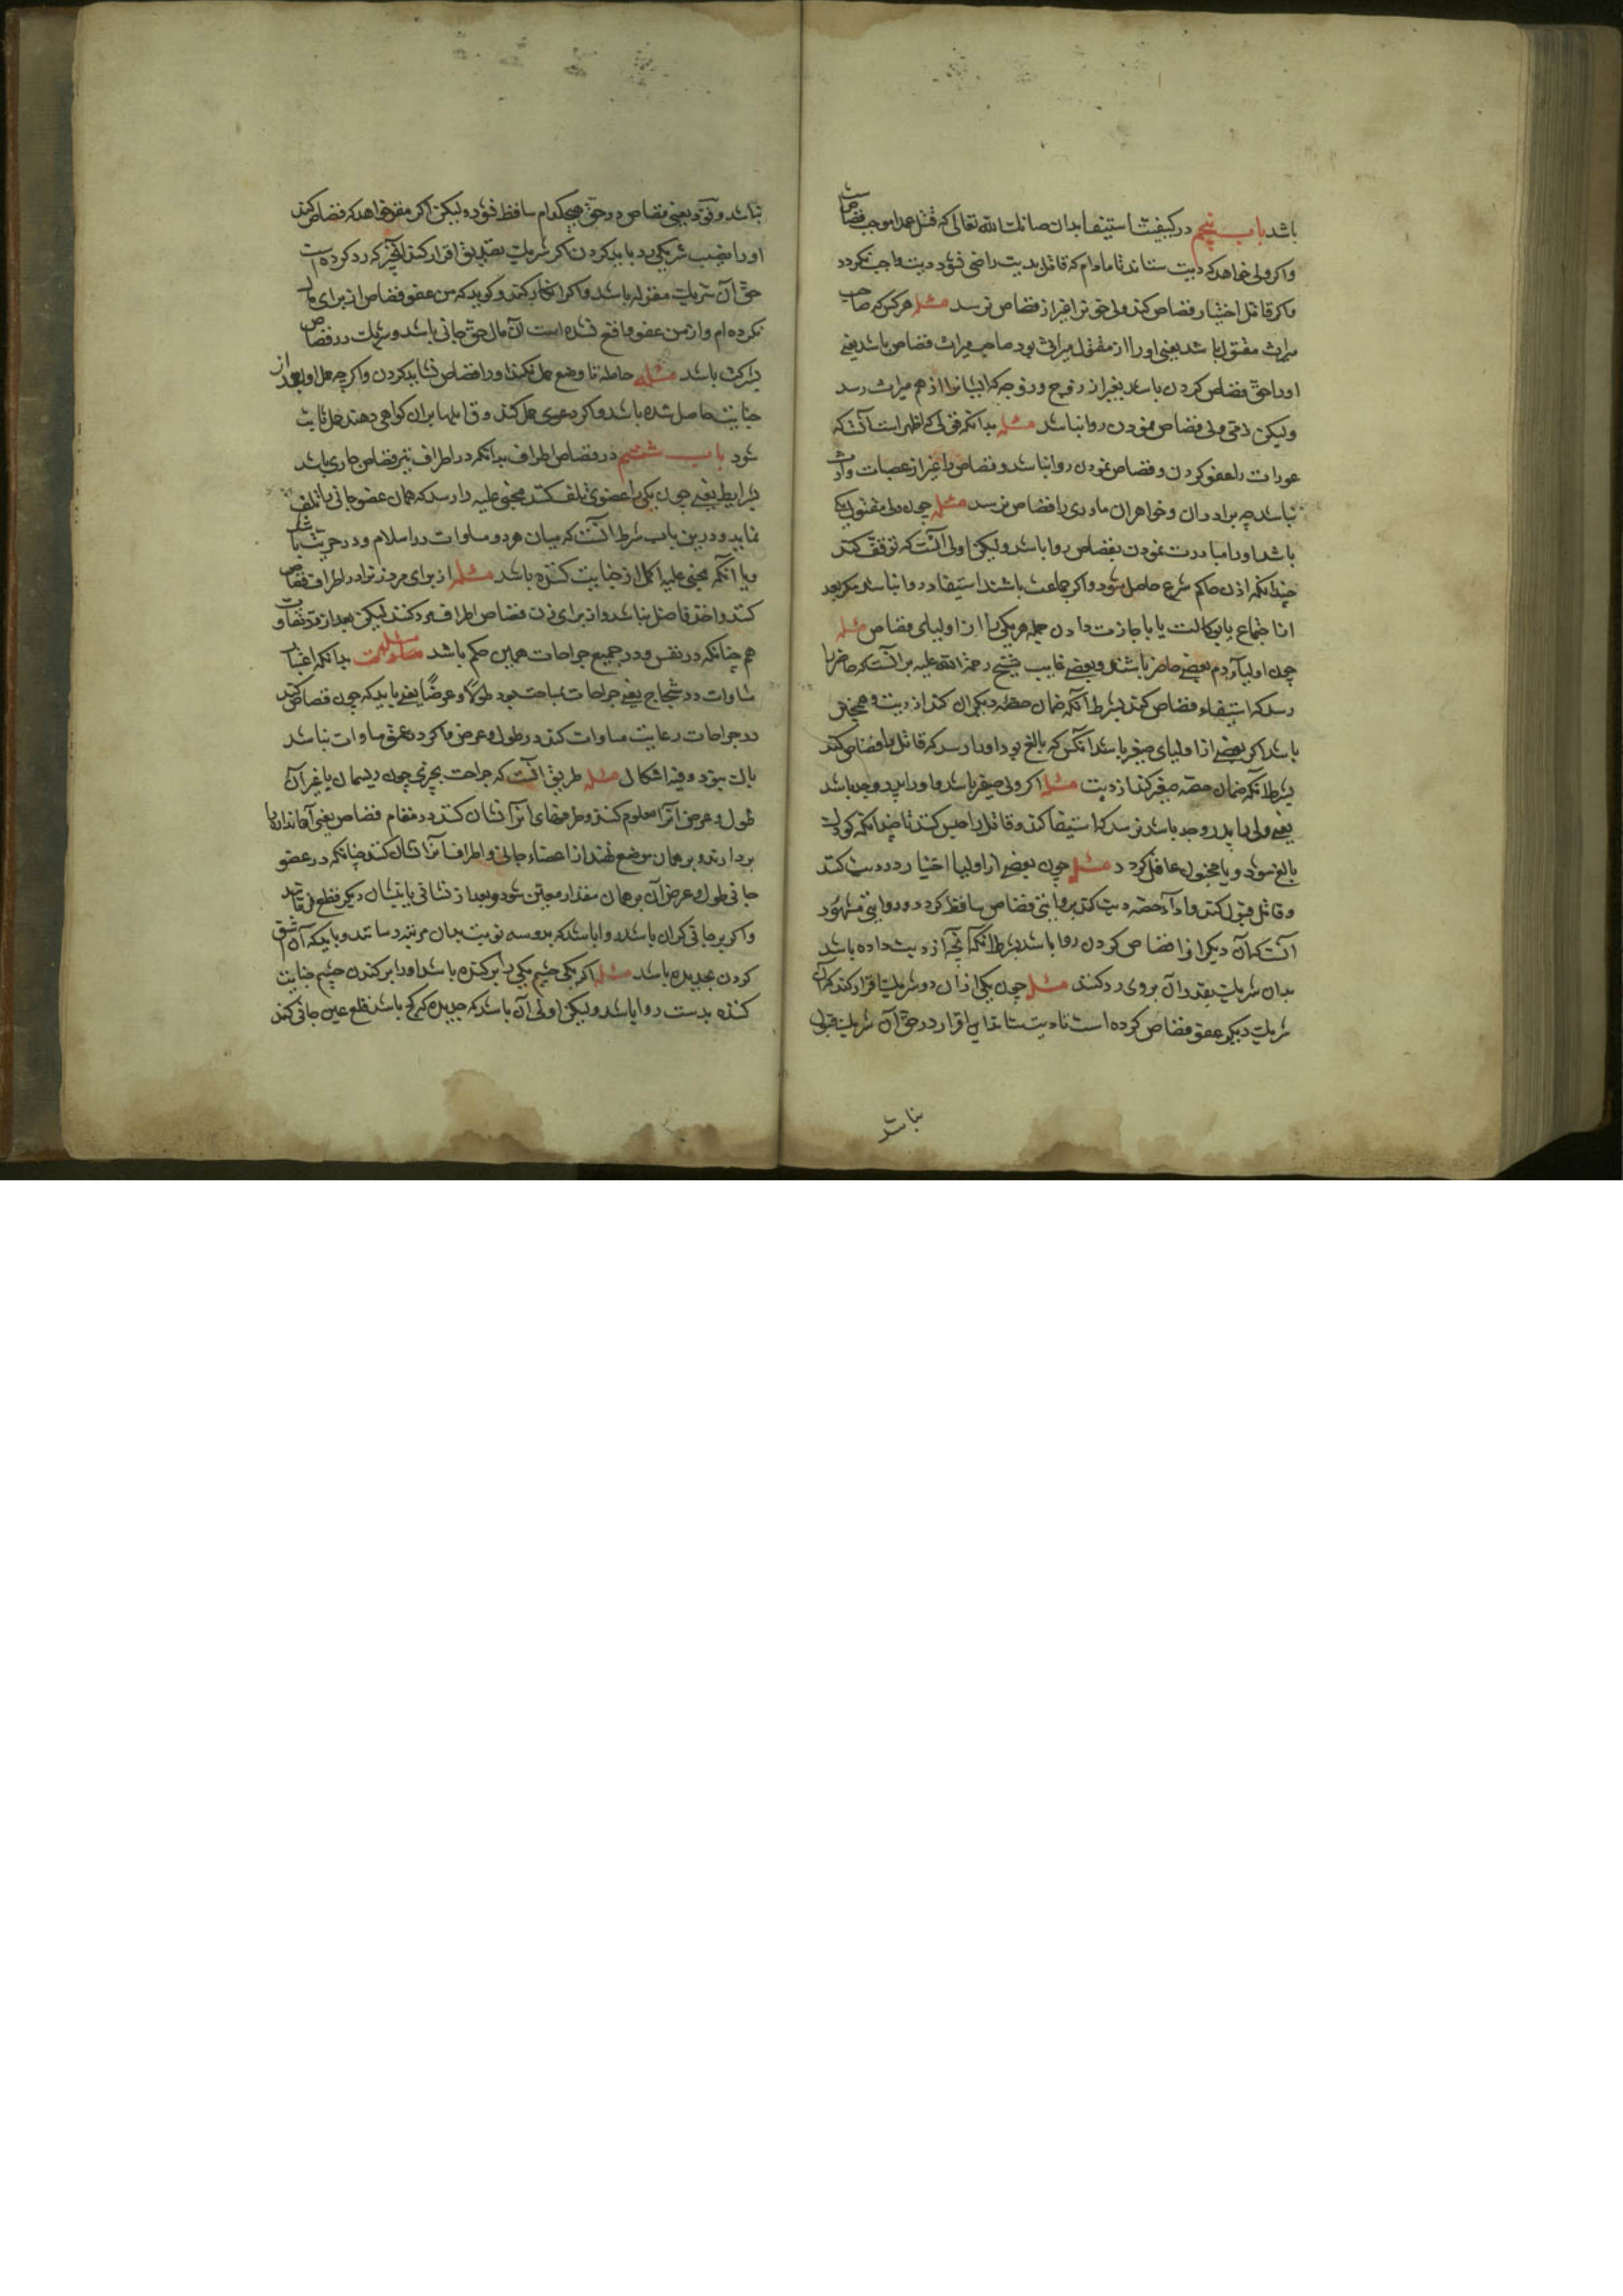 باشد باب پنجم در کیفیت استیفا بدان صانک الله تعالی که قتل عمد موجب قصاص است
واکر ولی خواهد که دیت ستاند تا مادام که قاتل بدیت راضی نشود دیت واجب نکردد
واکر قاتل اختیار قصاص کند ولی حق نرا غیر از قصاص نرسد مسئله هر کس که صاحب
میراث مقتول باشد یعنی او را از مقتول میراث بود صاحب میراث قصاص باشد یعنی
او را حق قصاص کردن باشد بغیر از زوج و زوجه که ایشانرا از هم میراث رسد
ولیکن قصاص نمودن روا نباشد مسئله بدانکه قولی که اظهر است آنست که
عورات را عفو کردن و قصاص نمودن روا نباشد و قصاص را غیر از عصبات وارث
نباشد چه برادران و خواهران مادری را قصاص نرسد مسئله چون ولی مقتول یکی
باشد او را مبادرت نمودن بقصاص روا باشد ولیکن اولی آنست که توقف کند
چندانکه اذن حاکم شرع حاصل شود واکر جماعت باشند استیفا روا نباشد مکر بعد
از اجتماع یا بوکالت یا باجازت دادن جمله هر یکی را از اولیای قصاص مسئله
چون اولیاء دم بعضی حاضر باشند و بعضی غایب شیخ رحمة الله علیه بر آنست که حاضر را
رسد که استیفاء قصاص کند بشرط آنکه ضمان حصه دیکران کند از دیت و همچنین
باشد اکر بعضی از اولیای صغیر باشد آنکس که بالغ بود او را رسد که قاتل را قصاص کند
بشرط آنکه ضمان حصه صغیر کند از دیت مسئله اکر ولی صغیر باشد و او را پدر و جد باشد
یعنی ولی را پدر و جد باشد نرسد که استیفا کند و قاتل را حبس کند تا چندانکه کودک
بالغ شود و یا مجنون عاقل کردد مسئله چون بعضی از اولیا اختیار رد دیت کند
و قاتل قبول کند و اداء حصه دیت کند بروایتی قصاص ساقط کردد و روایتی مشهور
آنست که آن دیکر او را قصاص کردن روا باشد بشرط آنکه آنچه از دیت داده باشد
بدان شریک بقدر آن بروی رد کند مسئله چون یکی از آن دو شریک اقرار کند که آن
شریک دیکر عفو قصاص کرده است تا دیت ستاند این اقرار در حق آن شریک قبول
نباشد
نباشد و قود یعنی قصاص در حق هیچکدام ساقط نشود ولیکن اکر مقر خواهد که قصاص کند
او را نصیب شریک رد باید کردن اکر شریک تصدیق اقرار کند آنچیز که رد کرده است
حق آن شریک مقر له باشد واکر انکار کند و کوید که من عفو قصاص از برای مال
نکرده‌ام و از من عفو واقع نشده است آن مال حق جانی باشد و شریک در قصاص
بشرکت باشد مسئله حامله تا وضع حمل نکند او را قصاص نشاید کردن واکرچه حمل او بعد از
جنایت حاصل شده باشد واکر دعوی حمل کند و قابلها بر آن کواهی دهند حمل ثابت
شود باب ششم در قصاص اطراف بدانکه در اطراف نیز قصاص جاری باشد
بشرایط یعنی چون یکی را عضوی تلف کند مجنی علیه را رسد که همان عضو جانی را تلف
نماید و درین باب شرط آنست که میان هر دو مساوات در اسلام و در حریت باشد
و یا آنکه مجنی علیه اکمل از جنایت کننده باشد مسئله از برای مرد زن را در اطراف قصاص
کنند و اخذ فاضل نباشد و از برای زن قصاص اطراف مرد کنند لیکن بعد از رد تفاوت
هم چنانکه در نفس و در جمیع جراحات همین حکم باشد مسئله بدانکه اعتبار
مساوات در شجاج یعنی جراحات بمساحت بود طولا و عرضا یعنی باید که چون قصاص کنند
در جراحات رعایت مساوات کند در طول و عرض واکر در عمق مساوات نباشد
باک نبود و فیه اشکال مسئله طریق آنست که جراحت بچیزی چون ریسمان یا غیر آن
طول و عرض آنرا معلوم کنند و طرفهای آنرا نشان کنند در مقام قصاص یعنی آن اندازه را
بردارند و بر همان موضع نهند از اعضاء جانی و اطراف آنرا نشان کنند چنانکه در عضو
جانی طول و عرض آن بر همان مقدار معین شود و بعد از نشانی تا نشان دیکر قطع فرمایند
واکر بر جانی کران باشد روا باشد که بدو سه نوبت بدان مرتبه رسانند و باید که آن شق
کردن بحدیده باشد مسئله اکر یکی چشم یکی را بر کنده باشد او را بر کندن چشم جنایت
کننده بدست روا باشد ولیکن اولی آن باشد که بحدیده کج باشد قلع عین جانی کند